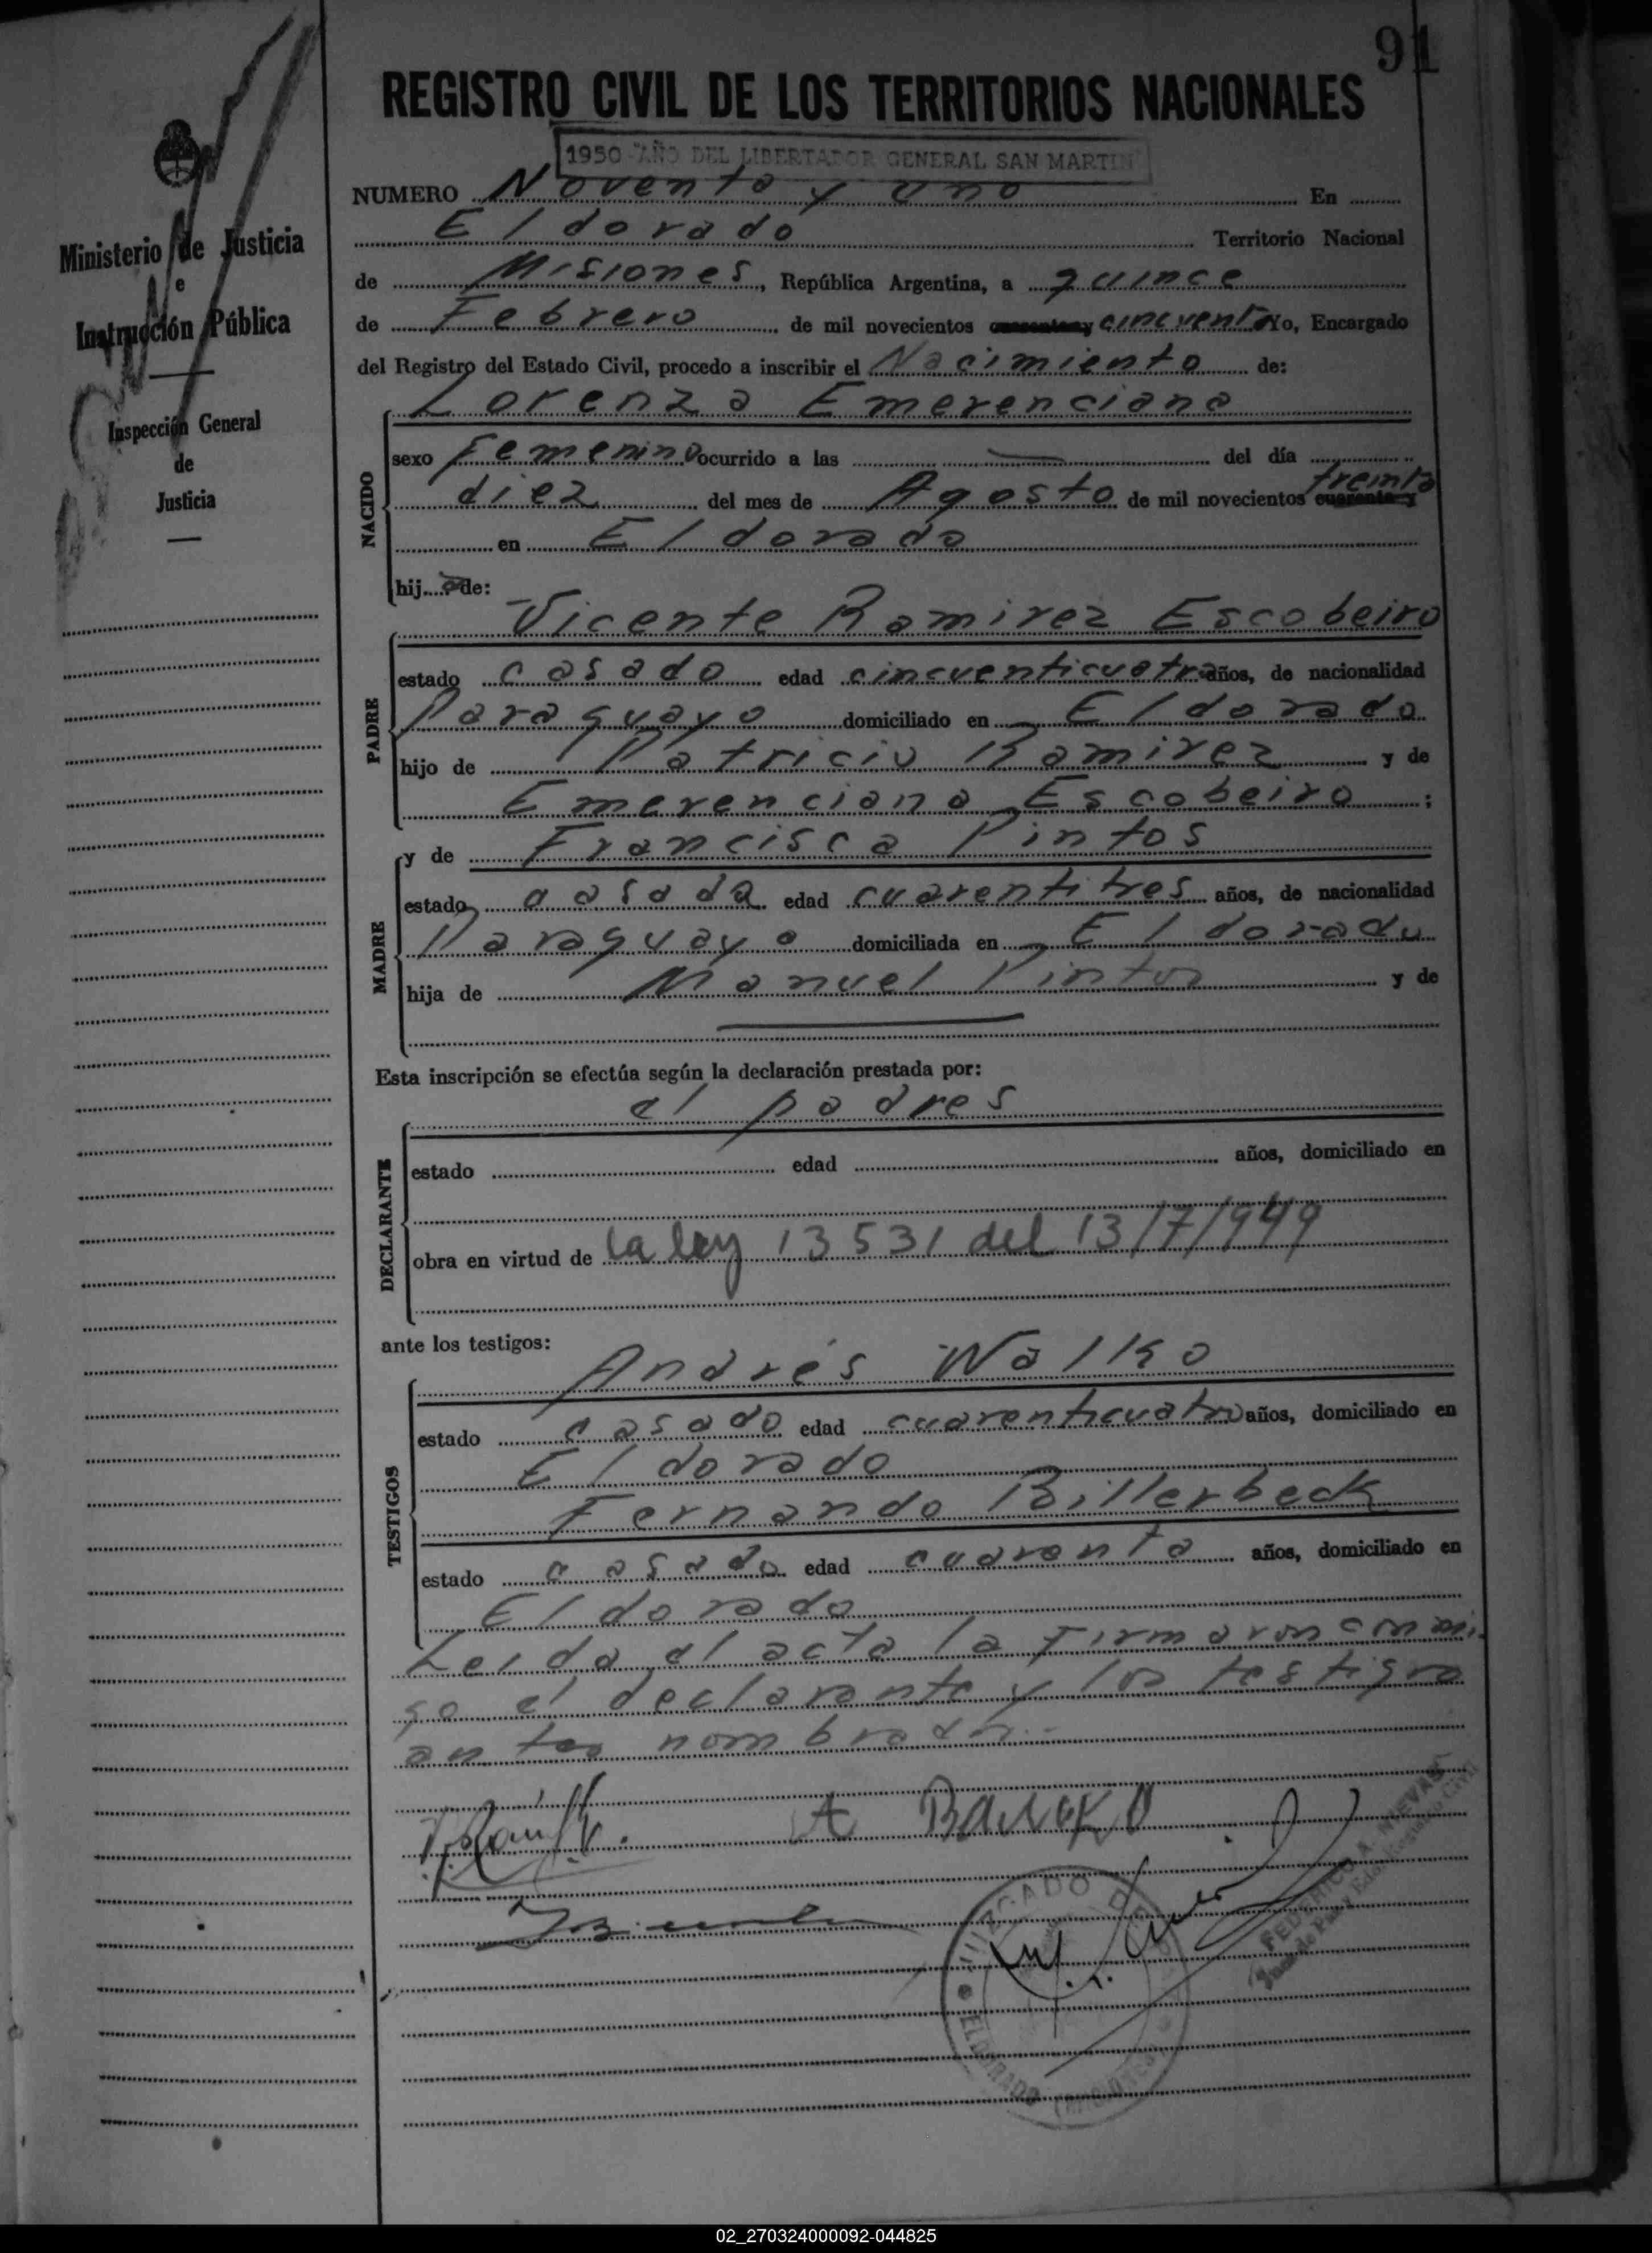 91
REGISTRO CIVIL DE LOS TERRITORIOS NACIONALES
1950 "AÑO DEL LIBERTADOR GENERAL SAN MARTIN"
Ministerio de Justicia
e
Instrucción Pública
Inspección General
de
Justicia
NUMERO Noventa y uno En
Eldorado Territorio Nacional
de Misiones, República Argentina, a quince
de Febrero de mil novecientos cuarenta y cincuenta Yo, Encargado
del Registro del Estado Civil, procedo a inscribir el Nacimiento de:
NACIDO
Lorenza Emerenciana
sexo Femenino ocurrido a las — del día
diez del mes de Agosto de mil novecientos cuarenta y treinta
en Eldorado
hija de:
PADRE
Vicente Ramirez Escobeiro
estado casado edad cincuenticuatro años, de nacionalidad
Paraguayo domiciliado en Eldorado
hijo de Patricio Ramirez y de
Emerenciana Escobeiro ;
MADRE
y de Francisca Pintos
estado casada edad cuarentitres años, de nacionalidad
Paraguaya domiciliada en Eldorado
hija de Manuel Pintos y de
Esta inscripción se efectúa según la declaración prestada por:
DECLARANTE
el padres
estado edad años, domiciliado en
obra en virtud de la ley 13531 del 13/7/949
ante los testigos:
TESTIGOS
Andrés Walko
estado casado edad cuarenticuatro años, domiciliado en
Eldorado
Fernando Billerbeck
estado casado edad cuarenta años, domiciliado en
Eldorado
Leida el acta la firmaron conmi-
go el declarante y los testigos
antes nombrados.-
JUZGADO DE
ELDORADO (MISIONES)
FEDERICO A. NIEVAS
Juez de Paz y Edo. Registro Civil
02_270324000092-044825